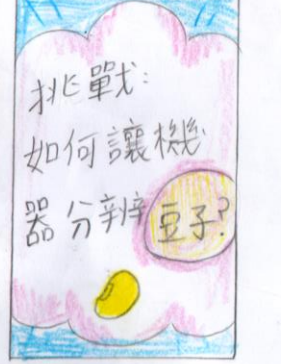 挑戰:
如何讓機
器分辨豆子?